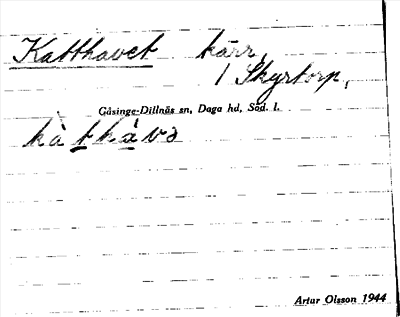 Katthavet kärr,
/ Skyrtorp,
Gåsinge-Dillnäs sn, Daga hd, Söd. l.
kàthàvə
Artur Olsson 1944